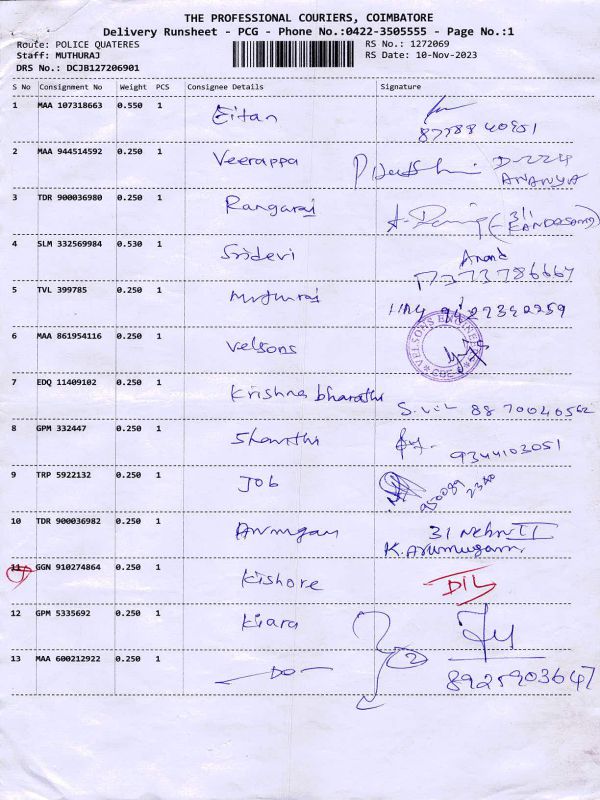 THE PROFESSIONAL COURIERS, COIMBATORE
Delivery Runsheet - PCG - Phone No.:0422-3505555 - Page No.:1
Route: POLICE QUATERES RS No.: 1272069
Staff: MUTHURAJ RS Date: 10-Nov-2023
DRS No.: DCJB127206901
S No Consignment No Weight PCS Consignee Details Signature
1 MAA 107318663 0.550 1 Eitan
2 MAA 944514592 0.250 1 Veerappa D-224
ANANYA
3 TDR 900036980 0.250 1 Rangaraj
4 SLM 332569984 0.530 1 Sridevi Anand
5 TVL 399785 0.250 1 Muthuraj
6 MAA 861954116 0.250 1 Velsons VELSONS CBE
7 EDQ 11409102 0.250 1 Krishna bharathi
8 GPM 332447 0.250 1 9344103051
9 TRP 5922132 0.250 1 Job
10 TDR 900036982 0.250 1 Arumugam 31 Nehru II
K. Arumugam
11 GGN 910274864 0.250 1 Kishore DIL
12 GPM 5335692 0.250 1 Kiara
13 MAA 600212922 0.250 1 DO 2
8925903647